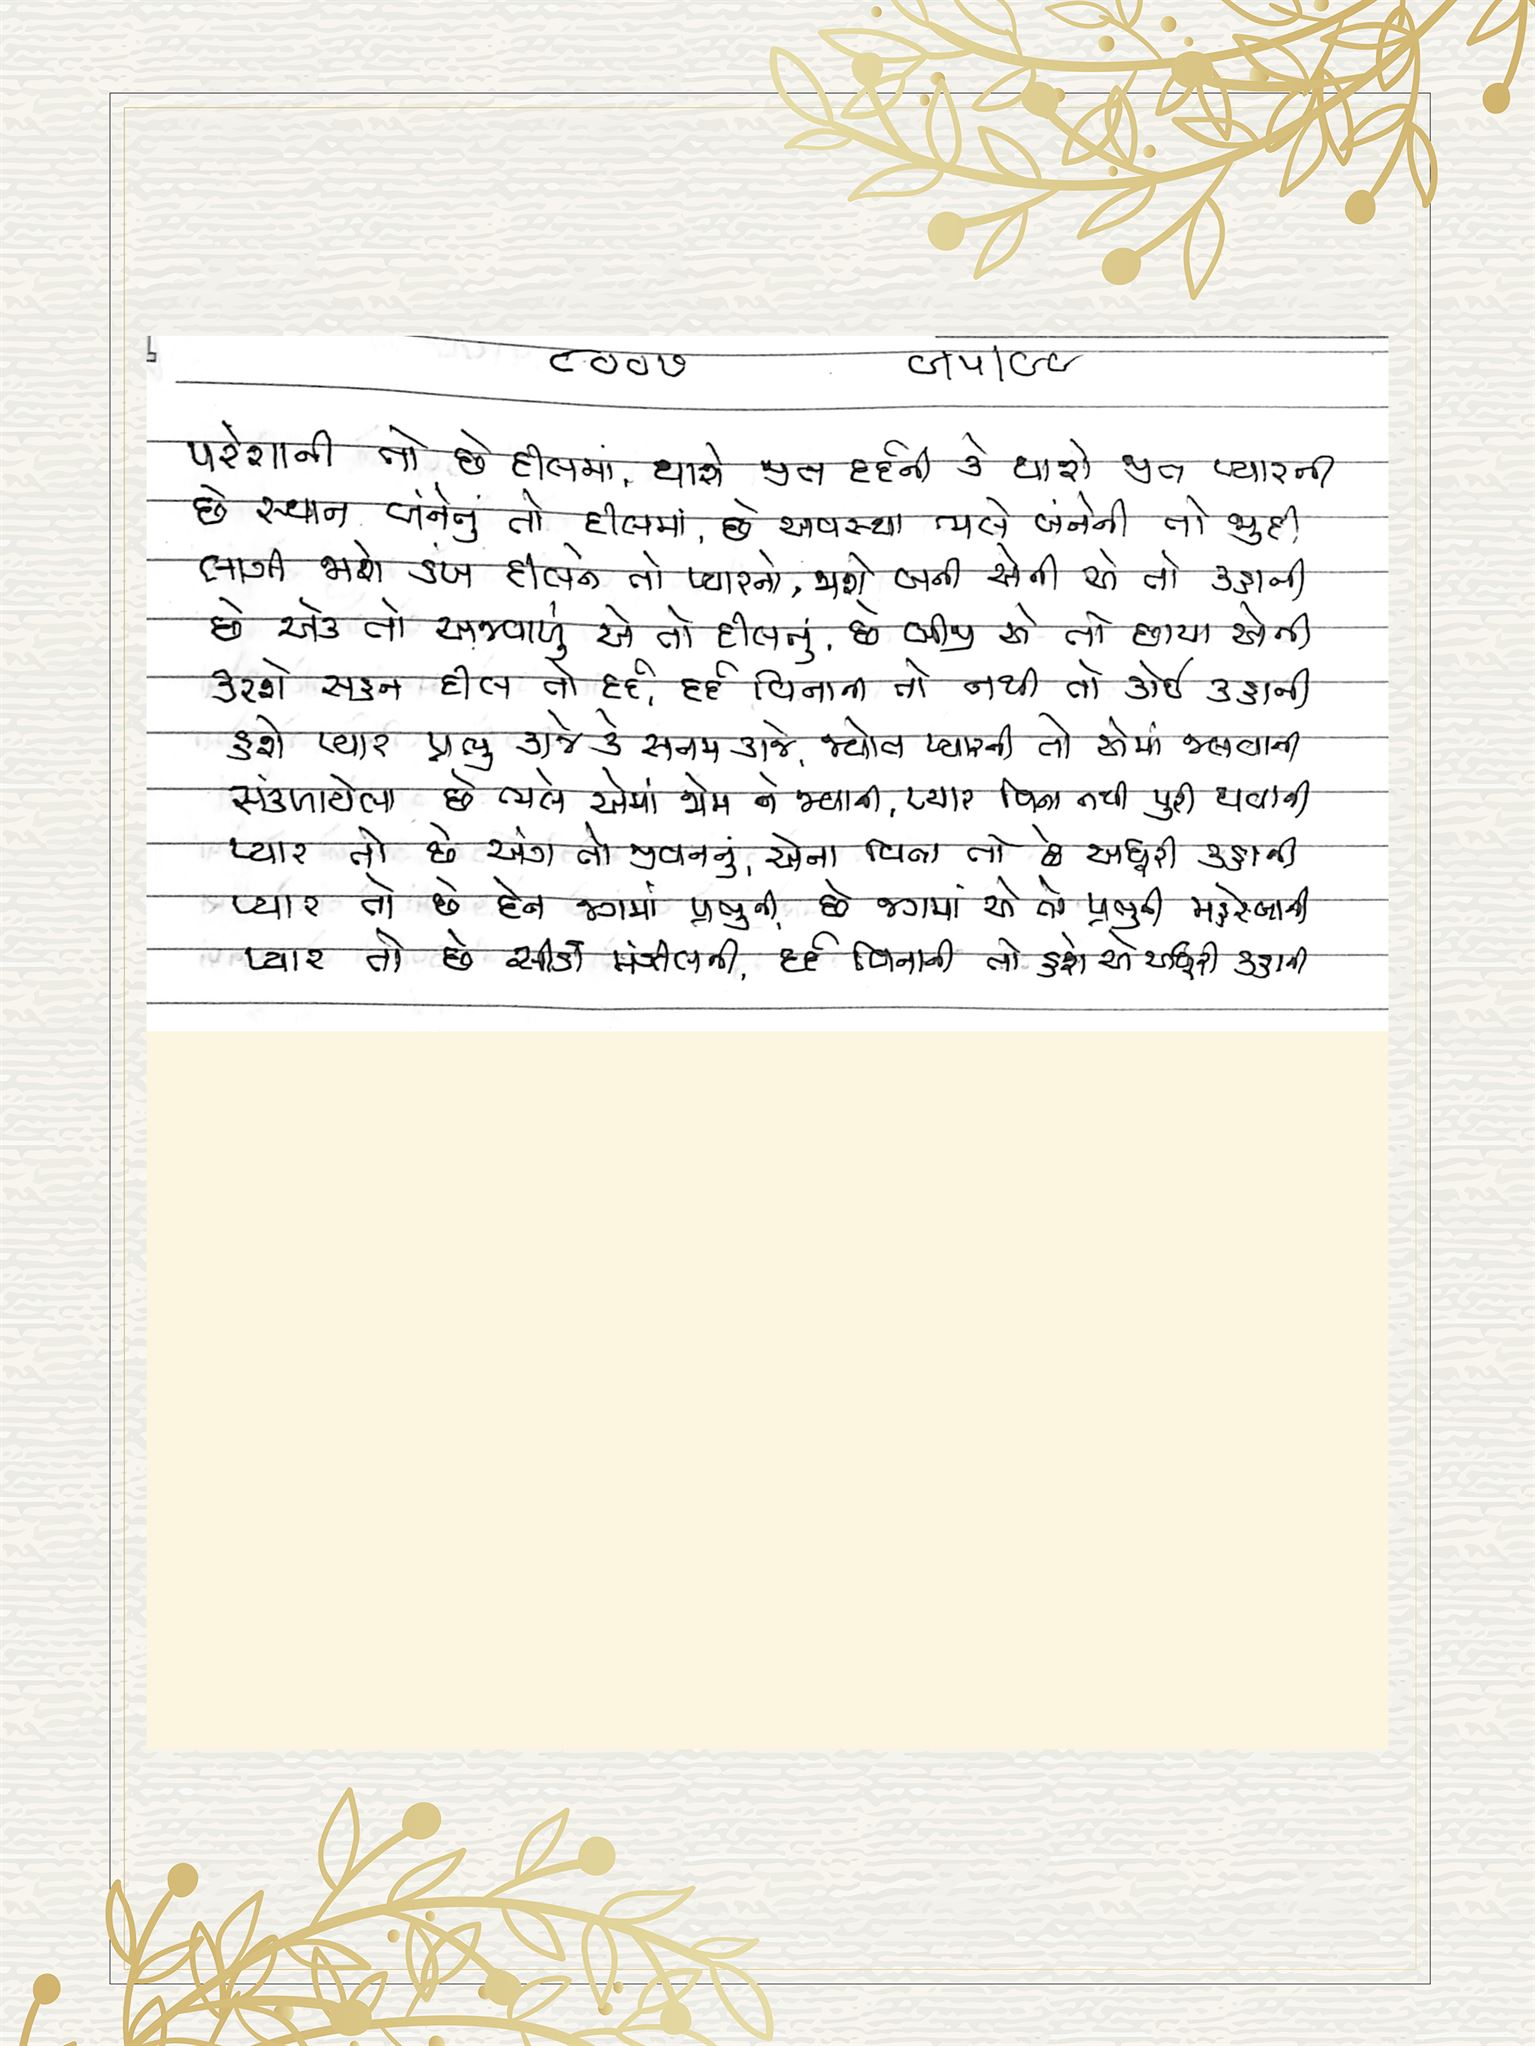 ૯૦૦૭ ૯।૫।૯૯
પરેશાની તો છે દીલમાં, થાશે જીત દર્દની કે થાશે જીત પ્યારની
છે સ્થાન બંનેનું તો દીલમાં, છે અવસ્થા ભલે બંનેની તો જુદી
લાગી જાશે ડંખ દીલને તો પ્યારનો, જાશે બની એની એ તો કહાની
છે એક તો અજવાળું એ તો દીલનું, છે બીજી એ તો છાયા એની
કરશે સહન દીલ તો દર્દ, દર્દ વિનાની તો નથી તો કોઈ કહાની
હશે પ્યાર પ્રભુ કાજે કે સનમ કાજે, જ્યોત પ્યારની તો એમાં જલવાની
સંકળાયેલા છે ભલે એમાં જામ ને જવાની, પ્યાર વિના નથી પુરી થવાની
પ્યાર તો છે અંગ તો જીવનનું, એના વિના તો છે અધુરી કહાની
પ્યાર તો છે દેન જગમાં પ્રભુની, છે જગમાં એ તો પ્રભુની મહેરબાની
પ્યાર તો છે સીડી મંઝીલની, દર્દ વિનાની તો હશે એ અધુરી કહાની